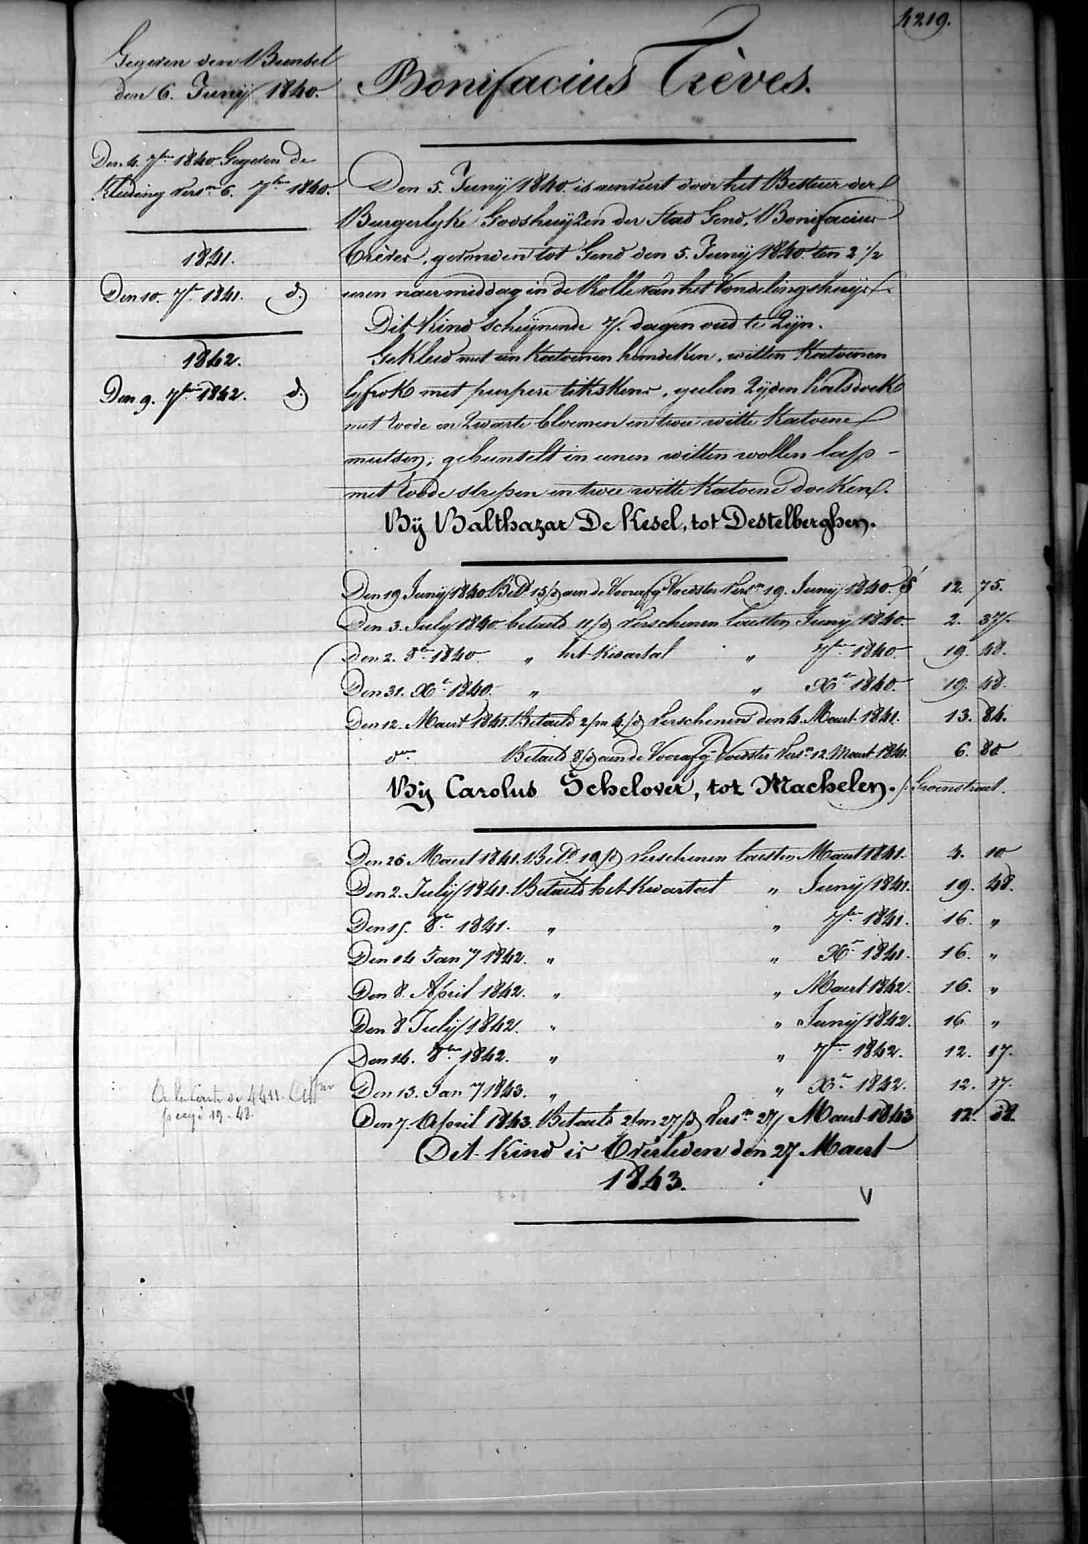 4219.
Gegeven den Bunsel
den 6. Junij 1840.
Den 4. 7ber 1840. Gegeven de
Kleding versn 6. 7ber 1840.
1841.
Den 10. 7br 1841. do
1842.
Den 9. 7br 1842. do
Bonifacius Trèves.
Den 5. Junij 1840. is aenveert door het Bestuer der
Burgerlyke Godshuijzen der Stad Gend, Bonifacius
Trèves, gevonden tot Gend den 5. Junij 1840. ten 2 1/2
uren naer middag in de Rolle van het Vondelingshuijs.
Dit Kind scheijnende 7. dagen oud te Zijn.
Gekleed met een Katoenen hemdeken, witten Katoenen
lyfrok met purpere tikskens, geelen Zijden halsdoek
met roode en Zwarte bloemen en twee witte Katoene
mutsen; gebunselt in eenen witten wollen lap
met roode strepen en twee witte Katoene doeken.
Bij Balthazar De Kesel, tot Destelberghen.
Den 19 Junij 1840 Betd 15/d aen de Voorafge Voedster Versn 19. Junij 1840. 12. 75.
Den 3. Julij 1840. betaeld 11/d Verschenen laesten Junij 1840. 2. 37.
Den 2. 8br 1840. " het Kwartael " 7br 1840. 19. 48.
Den 31. Xbr 1840. " " Xbr 1840. 19. 48.
Den 12. Maert 1841. Betaeld 2/m 4/d Verschenen den 4. Maert 1841. 13. 84.
do Betaeld 8/d aen de Voorafge Voedster Versn 12. Maert 1841. 6. 80
Bij Carolus Schelover, tot Machelen. Groenstraet.
Den 26 Maert 1841. Betd 19/d Verschenen laesten Maert 1841. 3. 10
Den 2. Julij 1841. Betaeld het Kwartael " Junij 1841. 19. 48.
Den 15. 8br 1841. " " 7br 1841. 16. "
Den 14 Jany 1842. " " Xbr 1841. 16. "
Den 8. April 1842. " " Maert 1842. 16. "
Den 8 Julij 1842. " " Junij 1842. 16 "
Den 14. 8br 1842. " " 7br 1842. 12. 17.
Den 13. Jany 1843. " " Xbr 1842. 12. 17.
Den 7. April 1843. Betaeld 2/m 27/d Versn 27 Maert 1843 12.
Dit Kind is Overleden den 27 Maert
1843.